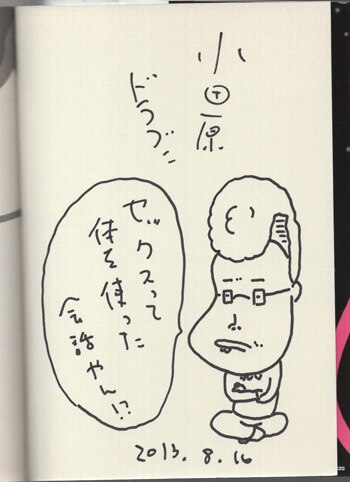 小田原
ドラゴン
セックスって
体を使った
会話やん!?
2013.8.16